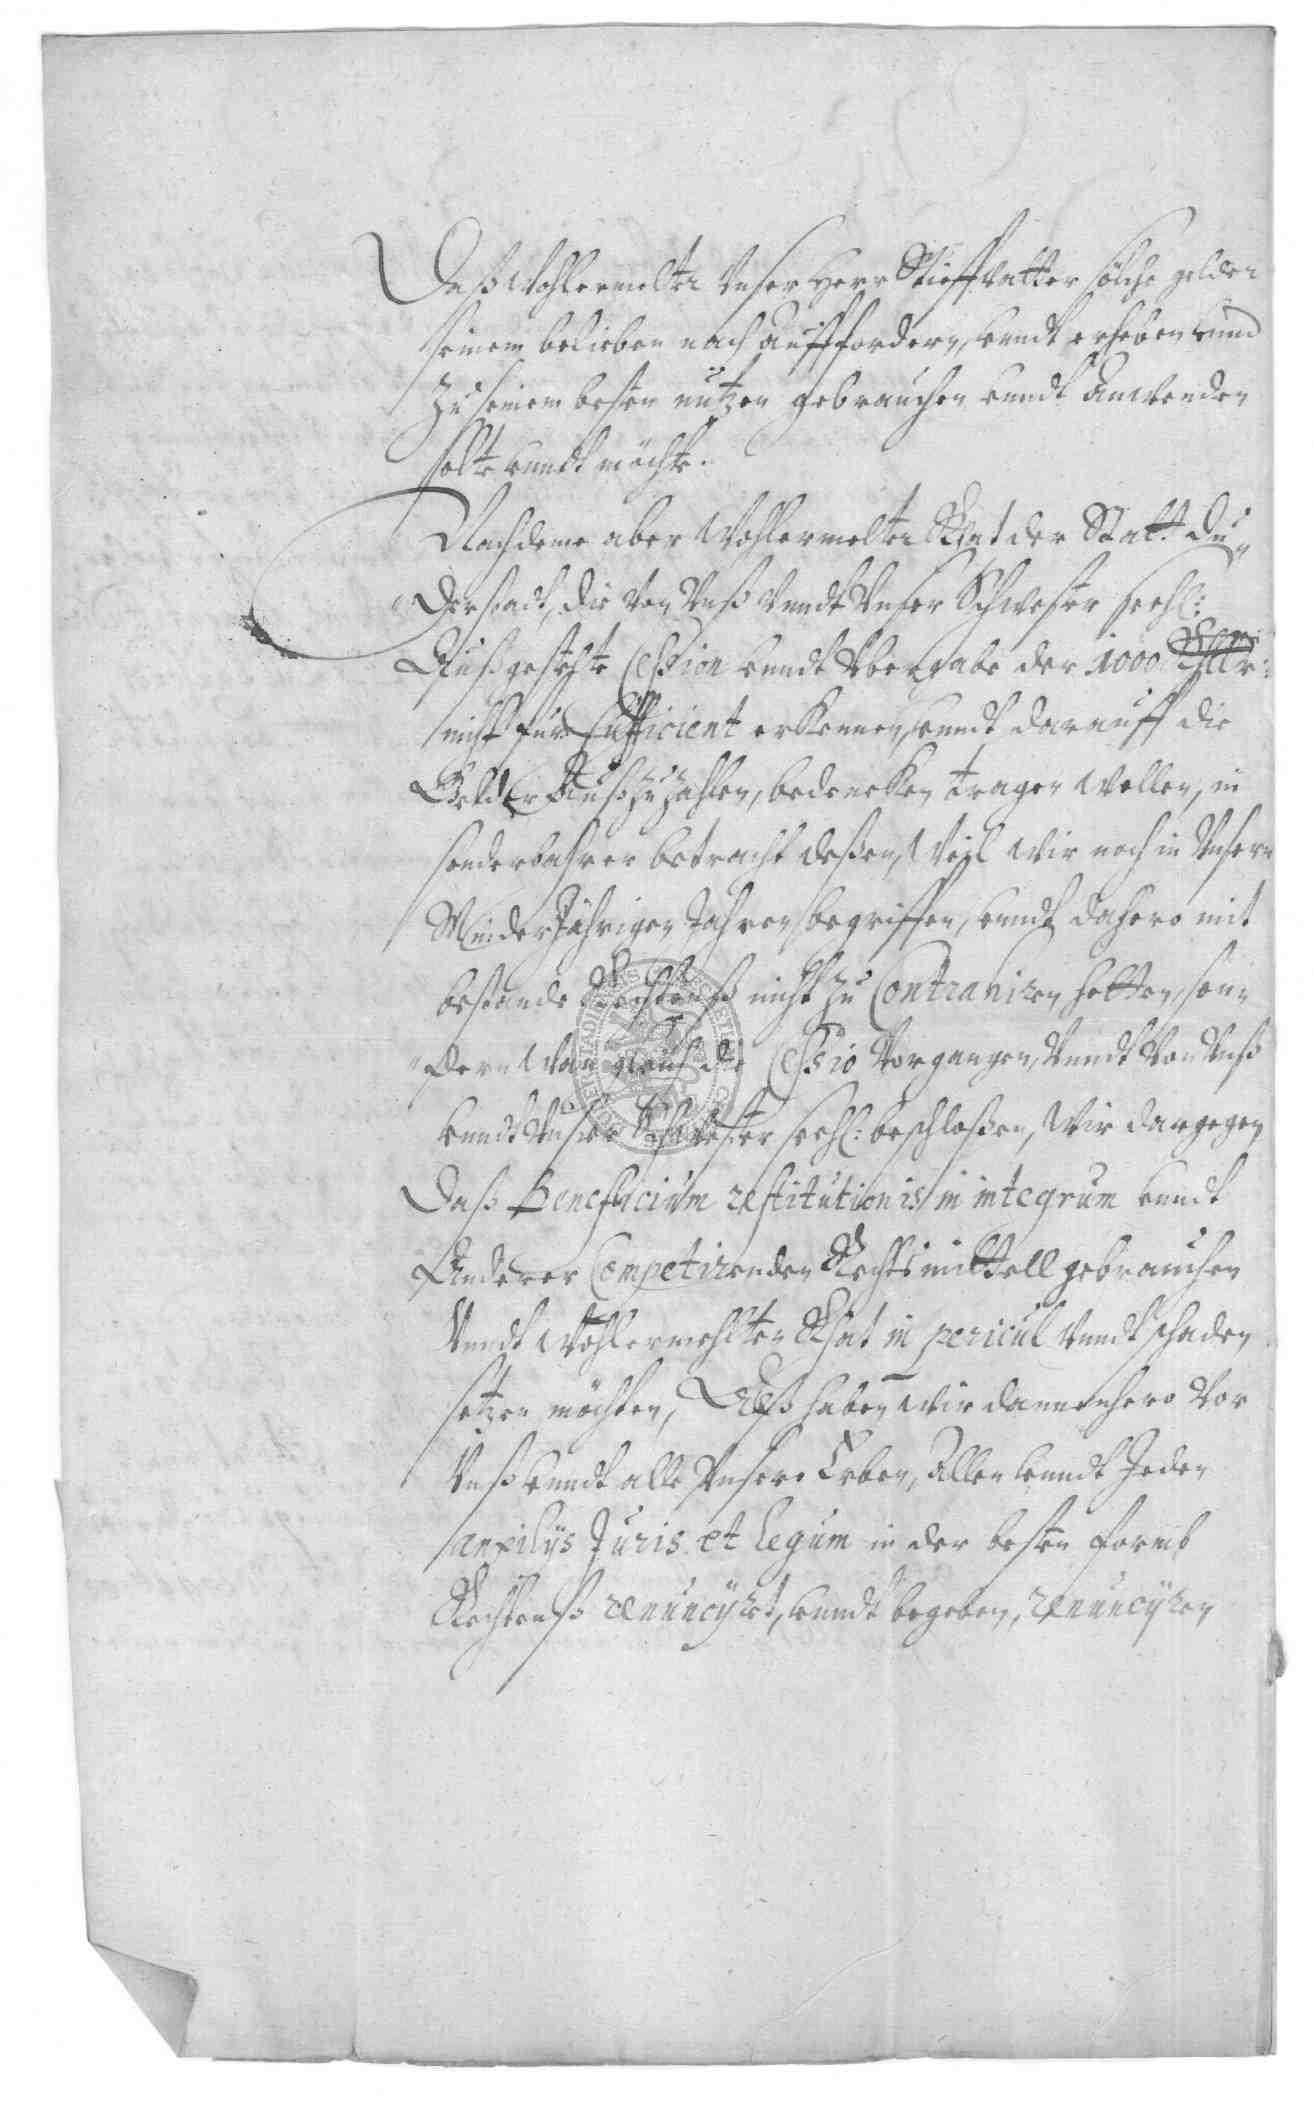 Daß Wohlermelter Unser Herr Stieffvatter solche gelder
seinem belieben nach auffordern, unndt erheben unnd
zu seinem besten nützen gebrauchen unndt Anwenden
solte unndt möchte.
Nachdeme aber Wohlermelter Rhat der Statt Du-
derstadt, die von Unß Unndt Unser Schwester seehl:
Außgestelte Cession unndt Übergabe der 1000 Thlr:
nicht für Sufficient erkennen, unndt darauff die
Gelder Außzuzahlen, bedencken tragen Wollen, in
sonderbahrer betracht deßen, Weil Wir noch in Unsern
Minderjährigen Jahren begriffen, unndt dahero mit
bestande Rechtenß nicht zu Contrahiren hetten, son-
dern Wan gleich die Cessio Vorgangen, Unndt Von Unß
unndt Unser Schwester seehl: beschloßen, Wir dargegen
Daß Beneficium restitutionis in integrum unndt
Anderer Competirenden Rechtsmittell gebrauchen
Unndt Wohlermehlten Rhat in pericul Unndt schaden
setzen möchten, Alß haben Wir dannenhero Vor
Unß unndt alle Unsere Erben, Allen unndt Jeden
auxiliis Juris et Legum in der besten formb
Rechtenß renuncijret, unndt begeben, renuncijren